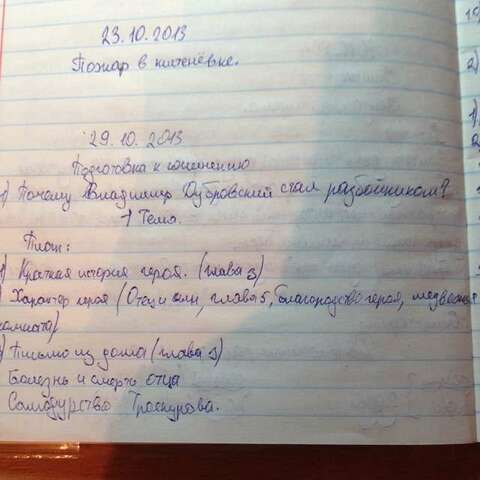 23.10.2013
Пожар в кистенёвке.
29.10.2013
Подготовка к сочинению
1) Почему Владимир Дубровский стал разбойником?
1 Тема.
План:
1) Краткая история героя. (глава 3)
) Характер героя (Отец и сын, глава 5, благородство героя, медвежья
комната)
) Письмо из дома (глава 3)
Болезнь и смерть отца
Самодурство Троекурова.